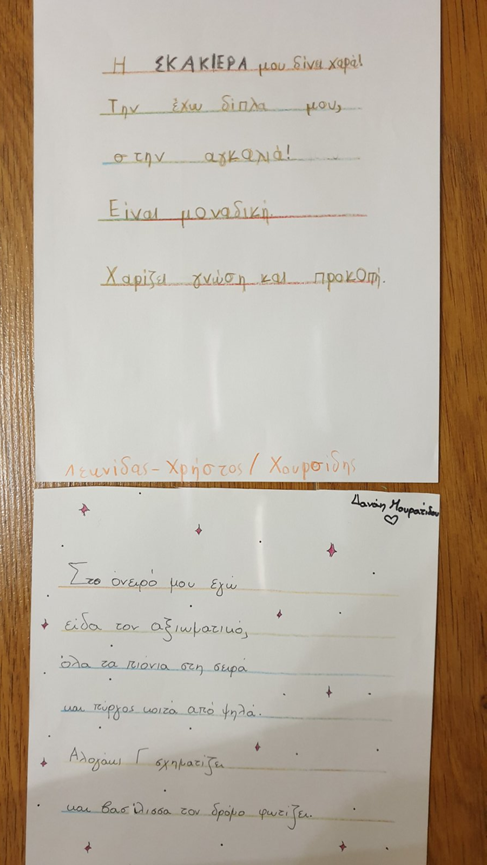 Η ΣΚΑΚΙΕΡΑ μου δίνει χαρά!
Την έχω δίπλα μου,
στην αγκαλιά!
Είναι μοναδική.
Χαρίζει γνώση και προκοπή.
Λεωνίδας-Χρήστος/Χουρσίδης
Δανάη Μουρατίδου
Στο όνειρό μου εγώ
είδα τον αξιωματικό,
όλα τα πιόνια στη σειρά
και πύργος κοιτά από ψηλά.
Αλογάκι Γ σχηματίζει
και βασίλισσα τον δρόμο φωτίζει.